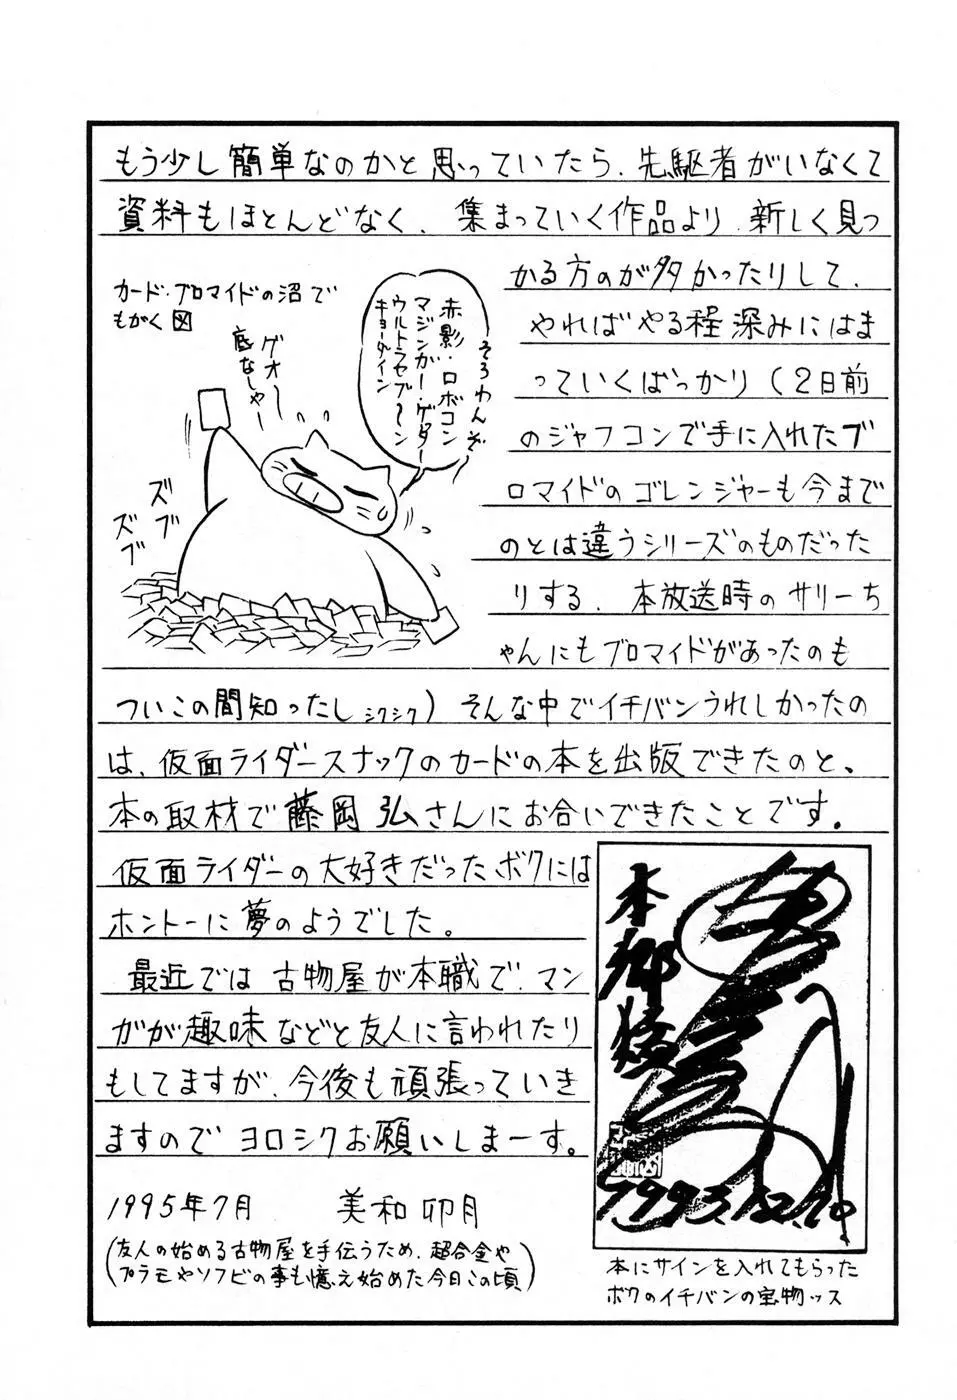 もう少し簡単なのかと思っていたら、先駆者がいなくて
資料もほとんどなく、集まっていく作品より、新しく見つ
かる方のが多かったりして、
やればやる程深みにはま
っていくばっかり(2日前
のジャフコンで手に入れたブ
ロマイドのゴレンジャーも今まで
のとは違うシリーズのものだった
りする、本放送時のサリーち
ゃんにもブロマイドがあったのも
ついこの間知ったし シクシク)そんな中でイチバンうれしかったの
は、仮面ライダースナックのカードの本を出版できたのと、
本の取材で藤岡弘さんにお合いできたことです。
仮面ライダーの大好きだったボクには
ホントーに夢のようでした。
最近では古物屋が本職で、マン
ガが趣味などと友人に言われたり
もしてますが、今後も頑張っていき
ますのでヨロシクお願いしまーす。
1995年7月 美和卯月
(友人の始める古物屋を手伝うため、超合金や
プラモやソフビの事も憶え始めた今日この頃)
カード・ブロマイドの沼で
もがく図
そろわんぞ〜
赤影・ロボコン
マジンガー・ゲッター
ウルトラセブ〜ン
キョーダイン
ゲオ〜
底なしゃー
ズブ
ズブ
本郷猛
1993.12.20
本にサインを入れてもらった
ボクのイチバンの宝物ッス